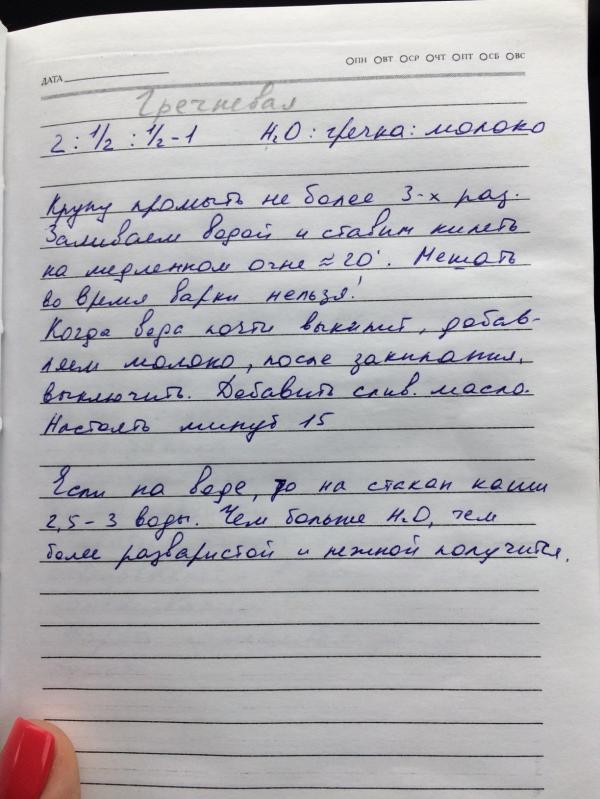 ДАТА
ПН ВТ СР ЧТ ПТ СБ ВС
Гречневая
2 : 1/2 : 1/2-1 H₂O : гречка : молоко
Крупу промыть не более 3-х раз.
Заливаем водой и ставим кипеть
на медленном огне ≈ 20'. Мешать
во время варки нельзя!
Когда вода почти выкипит, добав-
ляем молоко, после закипания,
выключить. Добавить слив. масло.
Настоять минут 15
Если на воде, то на стакан каши
2,5-3 воды. Чем больше H₂O, тем
более разваристой и нежной получится.